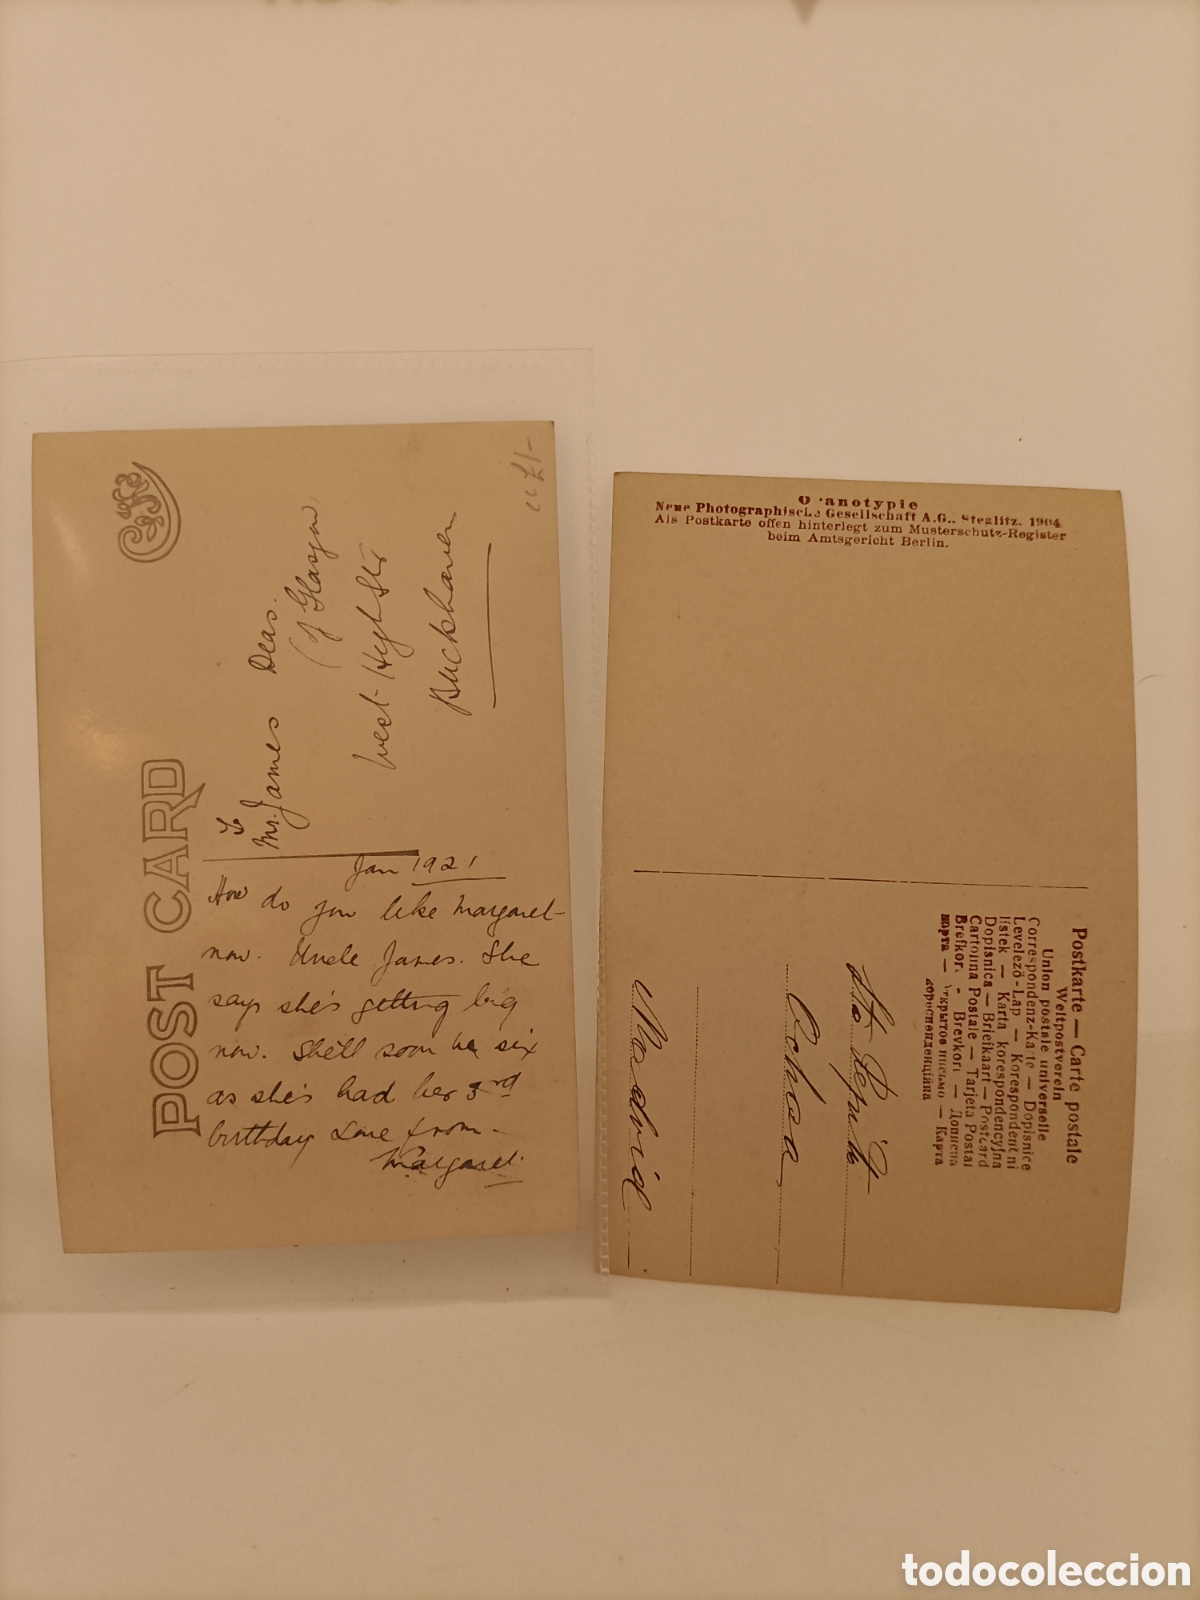 POST CARD
To
Mr. James Deas.
(of Glasgow)
West High Str
Buckhaven
Jan 1921
How do you like Margaret
now. Uncle James. She
says she's getting big
now. She'll soon be six
as she's had her 3rd
birthday Love from-
Margaret.
O anotypie
Neue Photographische Gesellschaft A.G., Steglitz. 1904
Als Postkarte offen hinterlegt zum Musterschutz-Register
beim Amtsgericht Berlin.
Postkarte — Carte postale
Weltpostverein
Union postale universelle
Correspondenz-Karte — Dopisnice
Levelező-Lap — Korespondentni
listek — Karta korespondencyjna
Dopisnica — Briefkaart — Postcard
Cartolina Postale — Tarjeta Postal
Brefkort — Brevkort — Дописна
карта — Открытое письмо — Карта
корреспонденційна
Ochoa
Madrid
todocoleccion